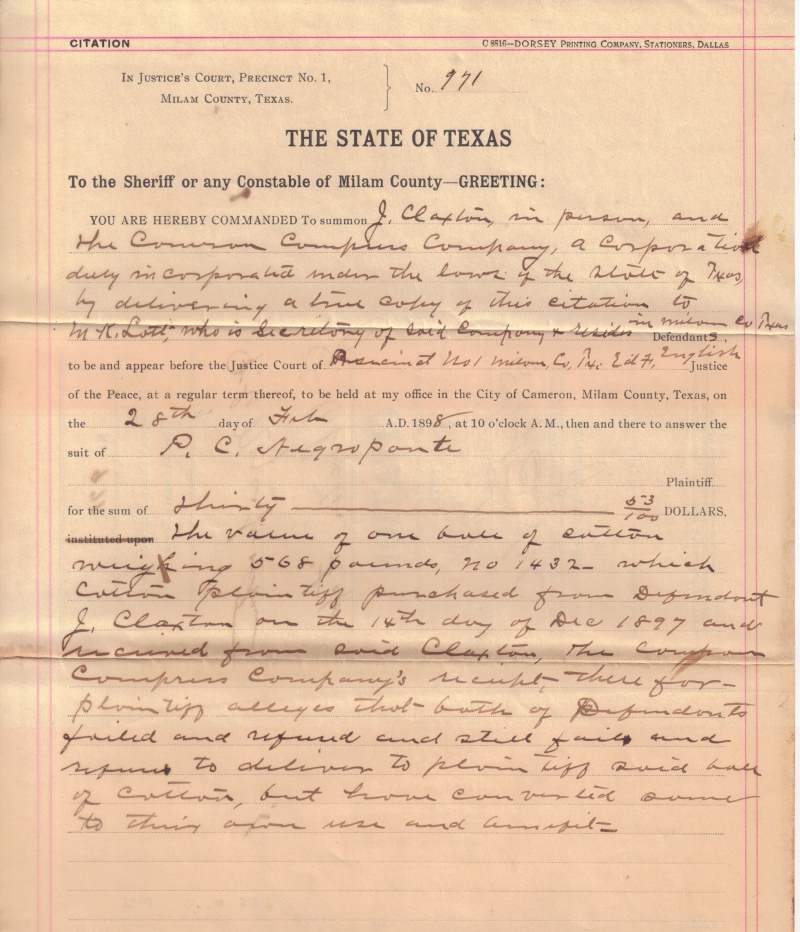 CITATION C 8816—DORSEY PRINTING COMPANY, STATIONERS, DALLAS
IN JUSTICE'S COURT, PRECINCT NO. 1,
MILAM COUNTY, TEXAS.
No. 971
THE STATE OF TEXAS
To the Sheriff or any Constable of Milam County—GREETING:
YOU ARE HEREBY COMMANDED To summon J. Claxton, in person, and
the Cameron Compress Company, a Corporation
duly incorporated under the laws of the State of Texas,
by delivering a true copy of this citation to
M. K. Lott, who is Secretary of said Company & resides in Milam Co Texas
Defendants,
to be and appear before the Justice Court of Precinct No 1 Milam Co, Tx. Ed F. English Justice
of the Peace, at a regular term thereof, to be held at my office in the City of Cameron, Milam County, Texas, on
the 28th day of Feb A.D. 1898, at 10 o'clock A.M., then and there to answer the
suit of P. C. Negroponte
Plaintiff
for the sum of Thirty 53/100 DOLLARS,
instituted upon the value of one bale of cotton
weighing 568 pounds, No 1432- which
Cotton plaintiff purchased from Defendant
J. Claxton on the 14th day of Dec 1897 and
received from said Claxton, the Compress
Compress Company's receipt, therefor-
plaintiff alleges that both of Defendants
failed and refused and still fail and
refuse to deliver to plaintiff said bale
of cotton, but have converted same
to their own use and benefit-